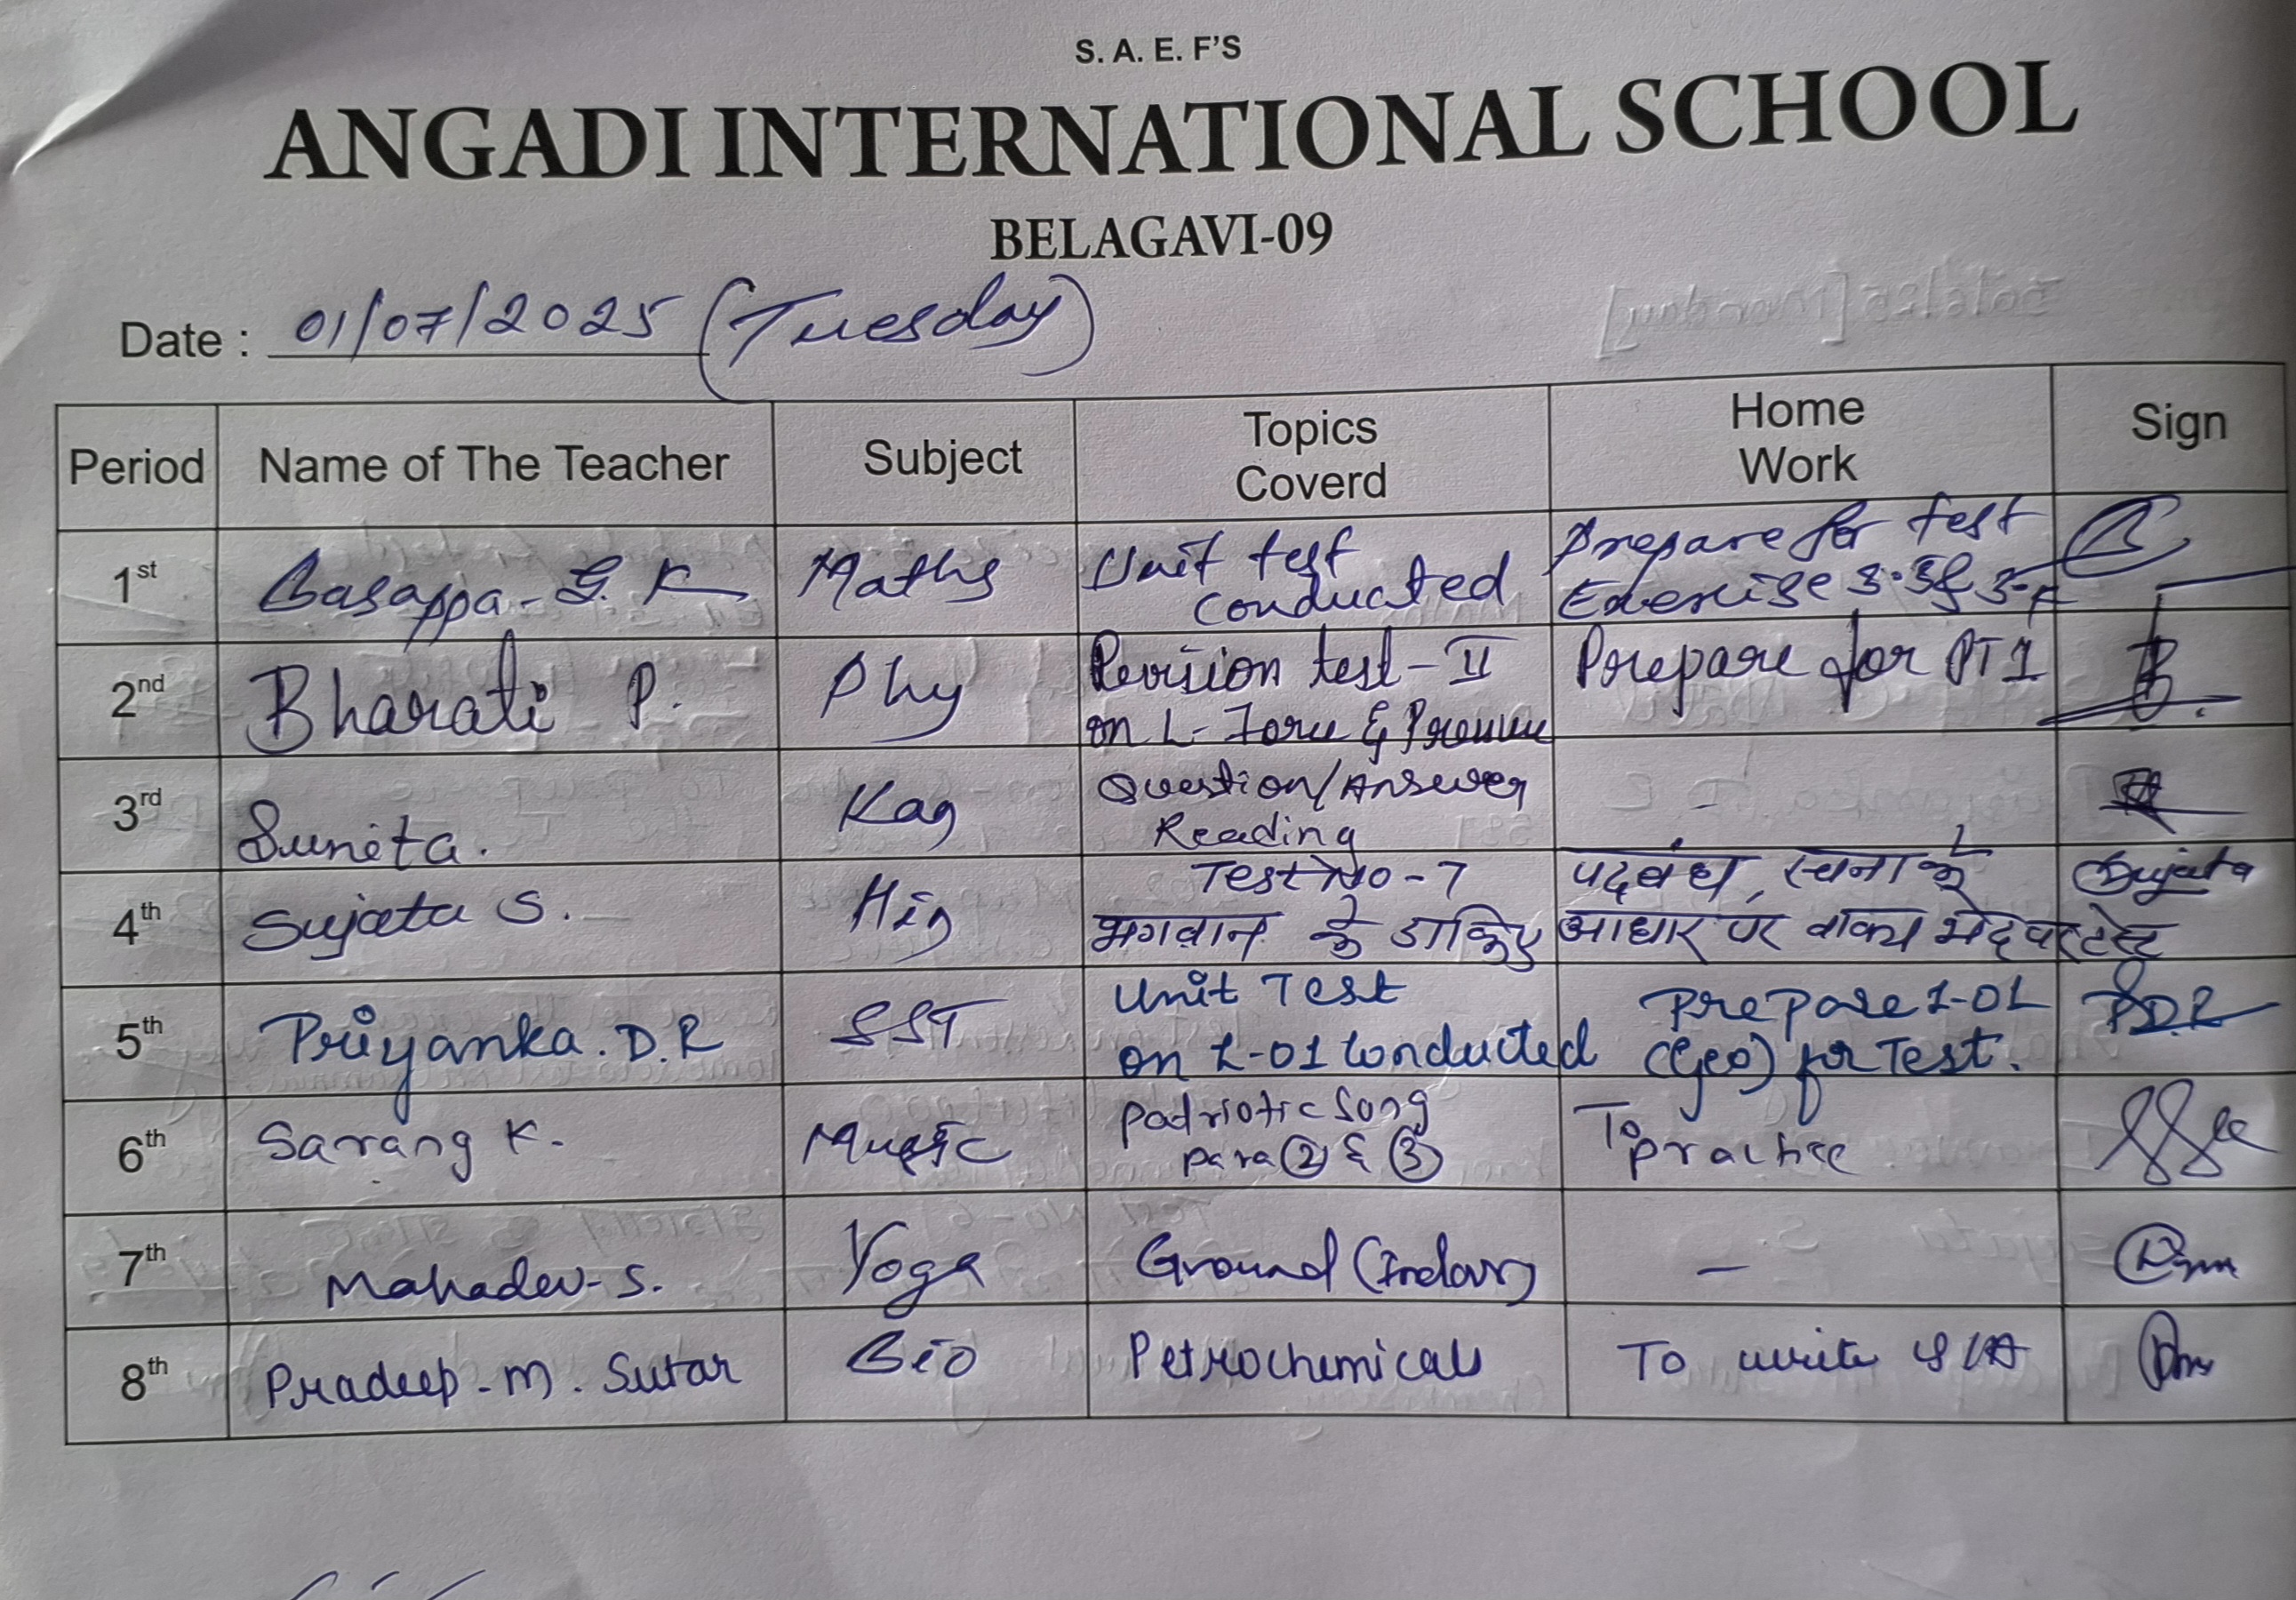 S. A. E. F'S
ANGADI INTERNATIONAL SCHOOL
BELAGAVI-09
Date : 01/07/2025 (Tuesday)
Period Name of The Teacher Subject Topics Coverd Home Work Sign
1st Basappa. G. K Maths Unit test conducted Prepare for test Exercise 3.3 &
2nd Bharati P. Phy Revision test - II on L- Force & Pressure Prepare for PT1
3rd Sunita. Kan Question/Answer Reading -
4th Sujata S. Hin Test No-7 भगवान के डाकिए पदबंध, रचना के आधार पर वाक्य भेद पर टेस्ट Sujata
5th Priyanka. D.R SST Unit Test on L-01 Conducted Prepare L-01 (Geo) for Test. P.D.R
6th Sarang K. Music Padriotic Song para ② & ③ To practice
7th Mahadev-S. Yoga Ground (Indour) —
8th Pradeep-M. Sutar Bio Petrochemicals To write Q/A